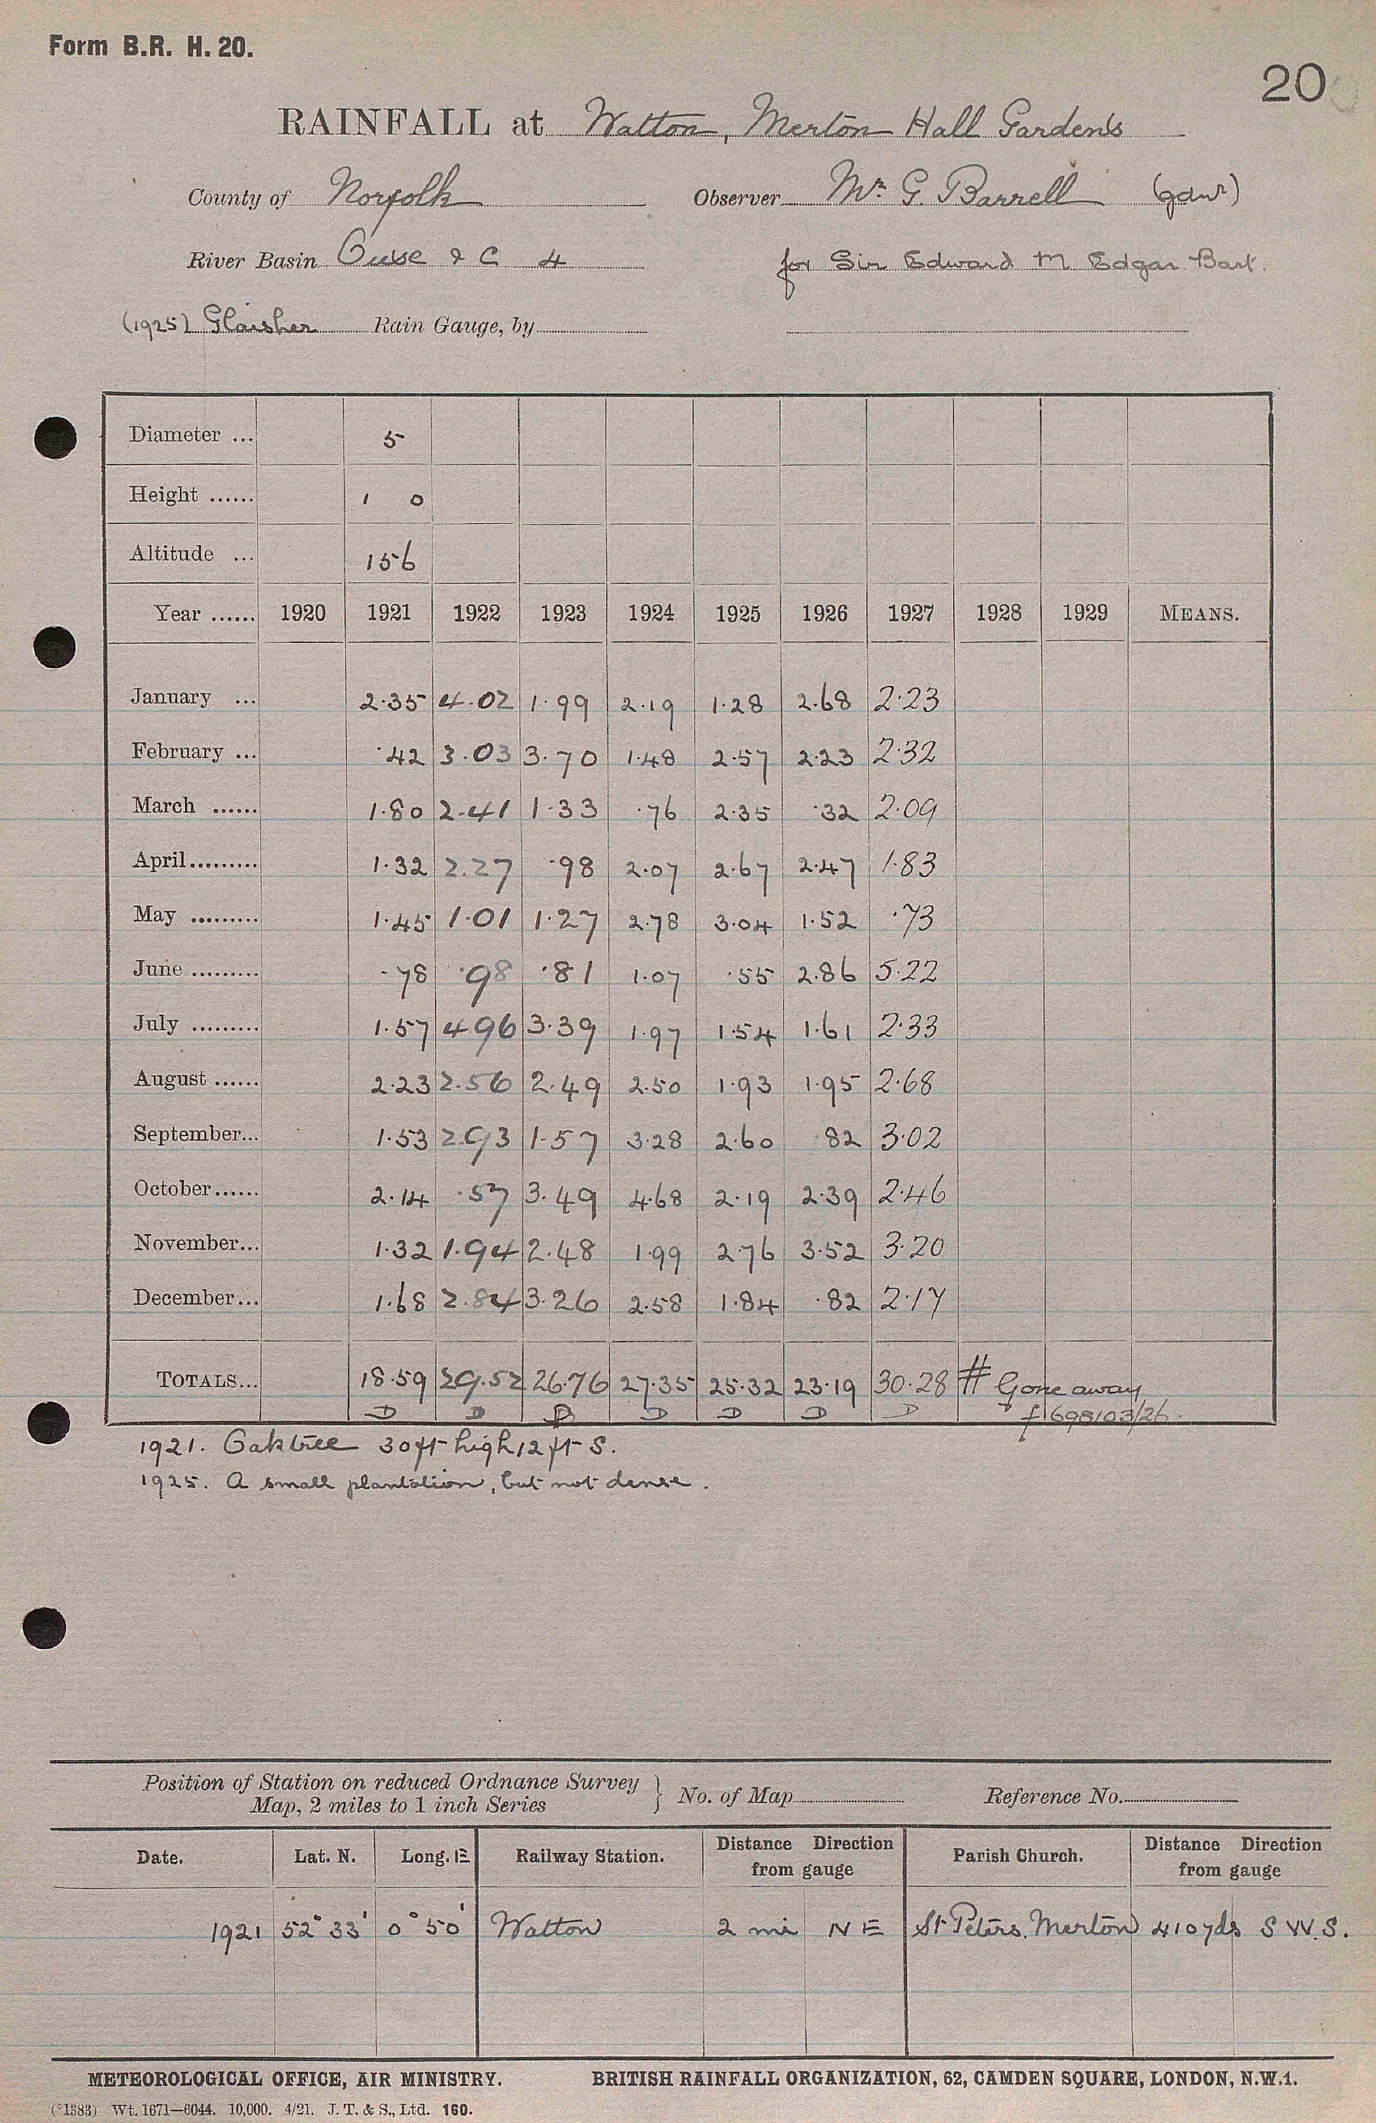 Form B.R. H. 20.
20
RAINFALL at Watton, Merton Hall Gardens
County of Norfolk Observer Mr. G. Barrell (gdnr)
River Basin Ouse & C 4 for Sir Edward M Edgar Bart.
(1925) Glaisher Rain Gauge, by
Diameter ... 5
Height ...... 1 0
Altitude ... 156
Year ...... 1920 1921 1922 1923 1924 1925 1926 1927 1928 1929 MEANS.
January ... 2.35 4.02 1.99 2.19 1.28 2.68 2.23
February ... .42 3.03 3.70 1.48 2.57 2.23 2.32
March ...... 1.80 2.41 1.33 .76 2.35 .32 2.09
April......... 1.32 2.27 .98 2.07 2.67 2.47 1.83
May ......... 1.45 1.01 1.27 2.78 3.04 1.52 .73
June ......... .78 .98 .81 1.07 .55 2.86 5.22
July ......... 1.57 4.96 3.39 1.97 1.54 1.61 2.33
August ...... 2.23 2.56 2.49 2.50 1.93 1.95 2.68
September... 1.53 2.93 1.57 3.28 2.60 .82 3.02
October...... 2.14 .57 3.49 4.68 2.19 2.39 2.46
November... 1.32 1.94 2.48 1.99 2.76 3.52 3.20
December... 1.68 2.84 3.26 2.58 1.84 .82 2.17
TOTALS... 18.59 29.52 26.76 27.35 25.32 23.19 30.28 # Gone away
D D D D D D D f 698103/26.
1921. Oaktree 30ft high 12 ft S.
1925. A small plantation, but not dense.
Position of Station on reduced Ordnance Survey Map, 2 miles to 1 inch Series } No. of Map Reference No.
Date. Lat. N. Long. E Railway Station. Distance Direction from gauge Parish Church. Distance Direction from gauge
1921 52° 33' 0° 50' Watton 2 mi N E St Peters, Merton 410 yds S W. S.
METEOROLOGICAL OFFICE, AIR MINISTRY. BRITISH RAINFALL ORGANIZATION, 62, CAMDEN SQUARE, LONDON, N.W.1.
(*1383) Wt. 1671—6044. 10,000. 4/21. J. T. & S., Ltd. 160.